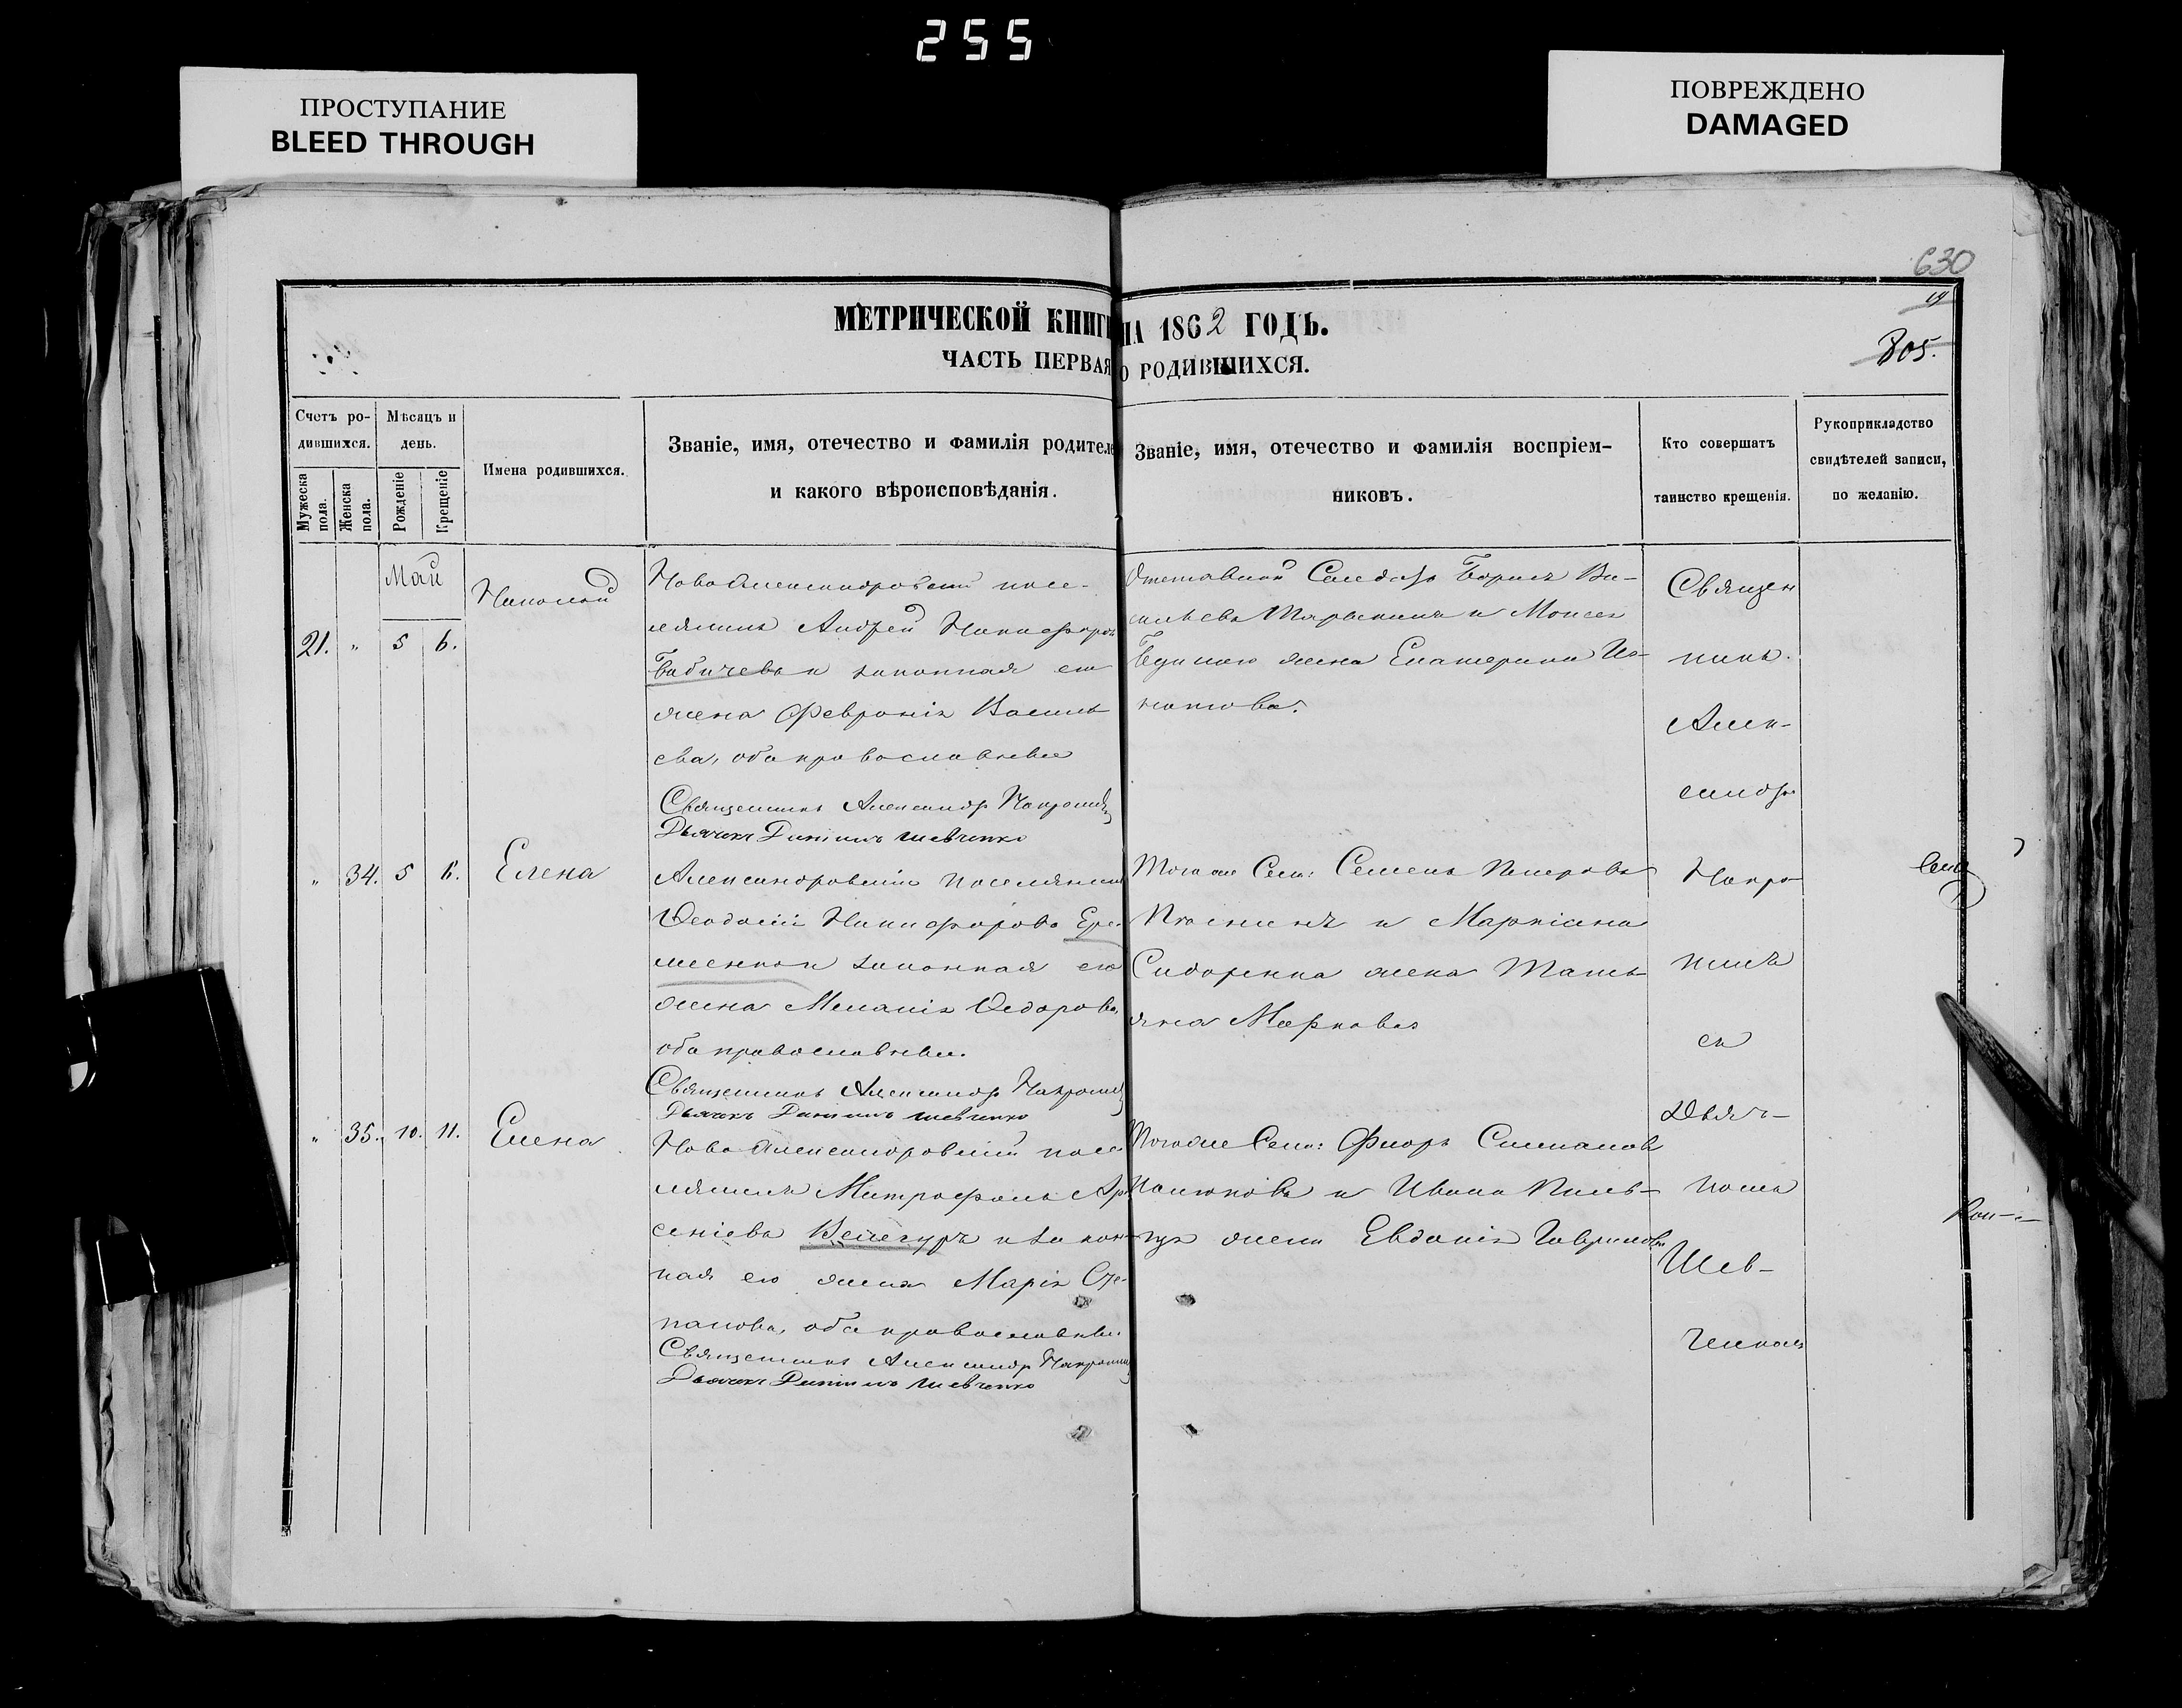 255
ПРОСТУПАНИЕ
BLEED THROUGH
ПОВРЕЖДЕНО
DAMAGED
630
19
805.
МЕТРИЧЕСКОЙ КНИГИ НА 1862 ГОДЪ.
ЧАСТЬ ПЕРВАЯ О РОДИВШИХСЯ.
Счетъ ро-
дившихся.
Мужеска пола.
Женска пола.
Мѣсяцъ и
день.
Рожденіе
Крещеніе
Имена родившихся.
Званіе, имя, отечество и фамилія родителе
и какого вѣроисповѣданія.
Званіе, имя, отечество и фамилія воспріем-
никовъ.
Кто совершатъ
таинство крещенія.
Рукоприкладство
свидѣтелей записи,
по желанію.
Май
21. " 5 6.
Николай
Новоалександровскій посе-
лянинъ Андрей Никифоровъ
Бабичевъ и законная его
жена Февронія Василь
ева, оба православные
Священникъ Александръ
Дьячокъ Данiилъ Шевченко
Отставной Солдатъ Борисъ Ва-
сильевъ и Моисея
жена Екатерина
" 34. 5 6.
Елена
Александровскій поселянинъ
Ѳеодосій Никифоровъ Ере-
меенко и законная его
жена Меланія Ѳедорова,
оба православные.
Священникъ Александръ
Дьячокъ Данiилъ Шевченко
Тогоже Села: Семенъ Петровъ
и Маркіана
Сидоренка жена Тать
яна Маркова
" 35. 10. 11.
Елена
Новоалександровскій посе-
лянинъ Митрофанъ Ар
сеніевъ Венгуръ и закон
ная его жена Марія Сте-
панова, оба православные.
Священникъ Александръ
Дьячокъ Данiилъ Шевченко
Тогоже Села: Флоръ Степановъ
и Ивана
жена Евдокія Гаврилова
Священ
никъ
Алек-
сандръ
съ
Дьяч-
комъ
Шев-
ченкомъ